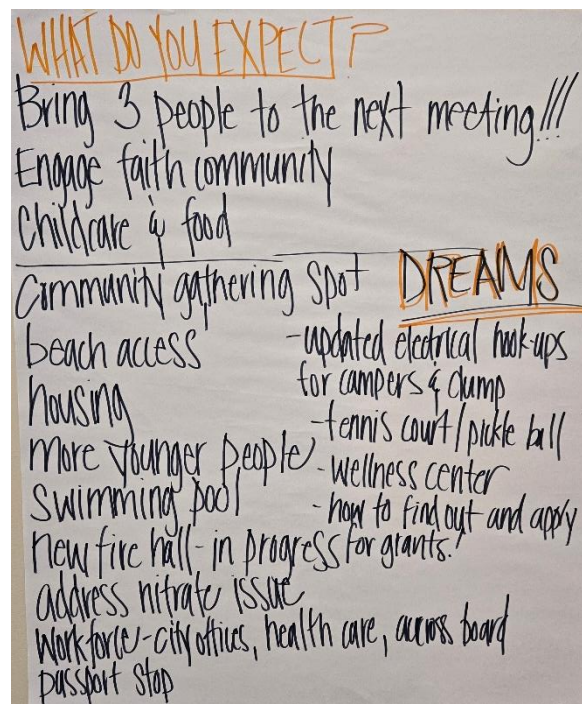 WHAT DO YOU EXPECT?
Bring 3 people to the next meeting!!!
Engage faith community
Childcare & food
DREAMS
Community gathering spot
beach access
housing
more younger people
swimming pool
new fire hall - in progress
address nitrate issue
workforce - city offices, health care, across board
passport stop
- updated electrical hook-ups
for campers & dump
- tennis court / pickle ball
- wellness center
- how to find out and apply
for grants!